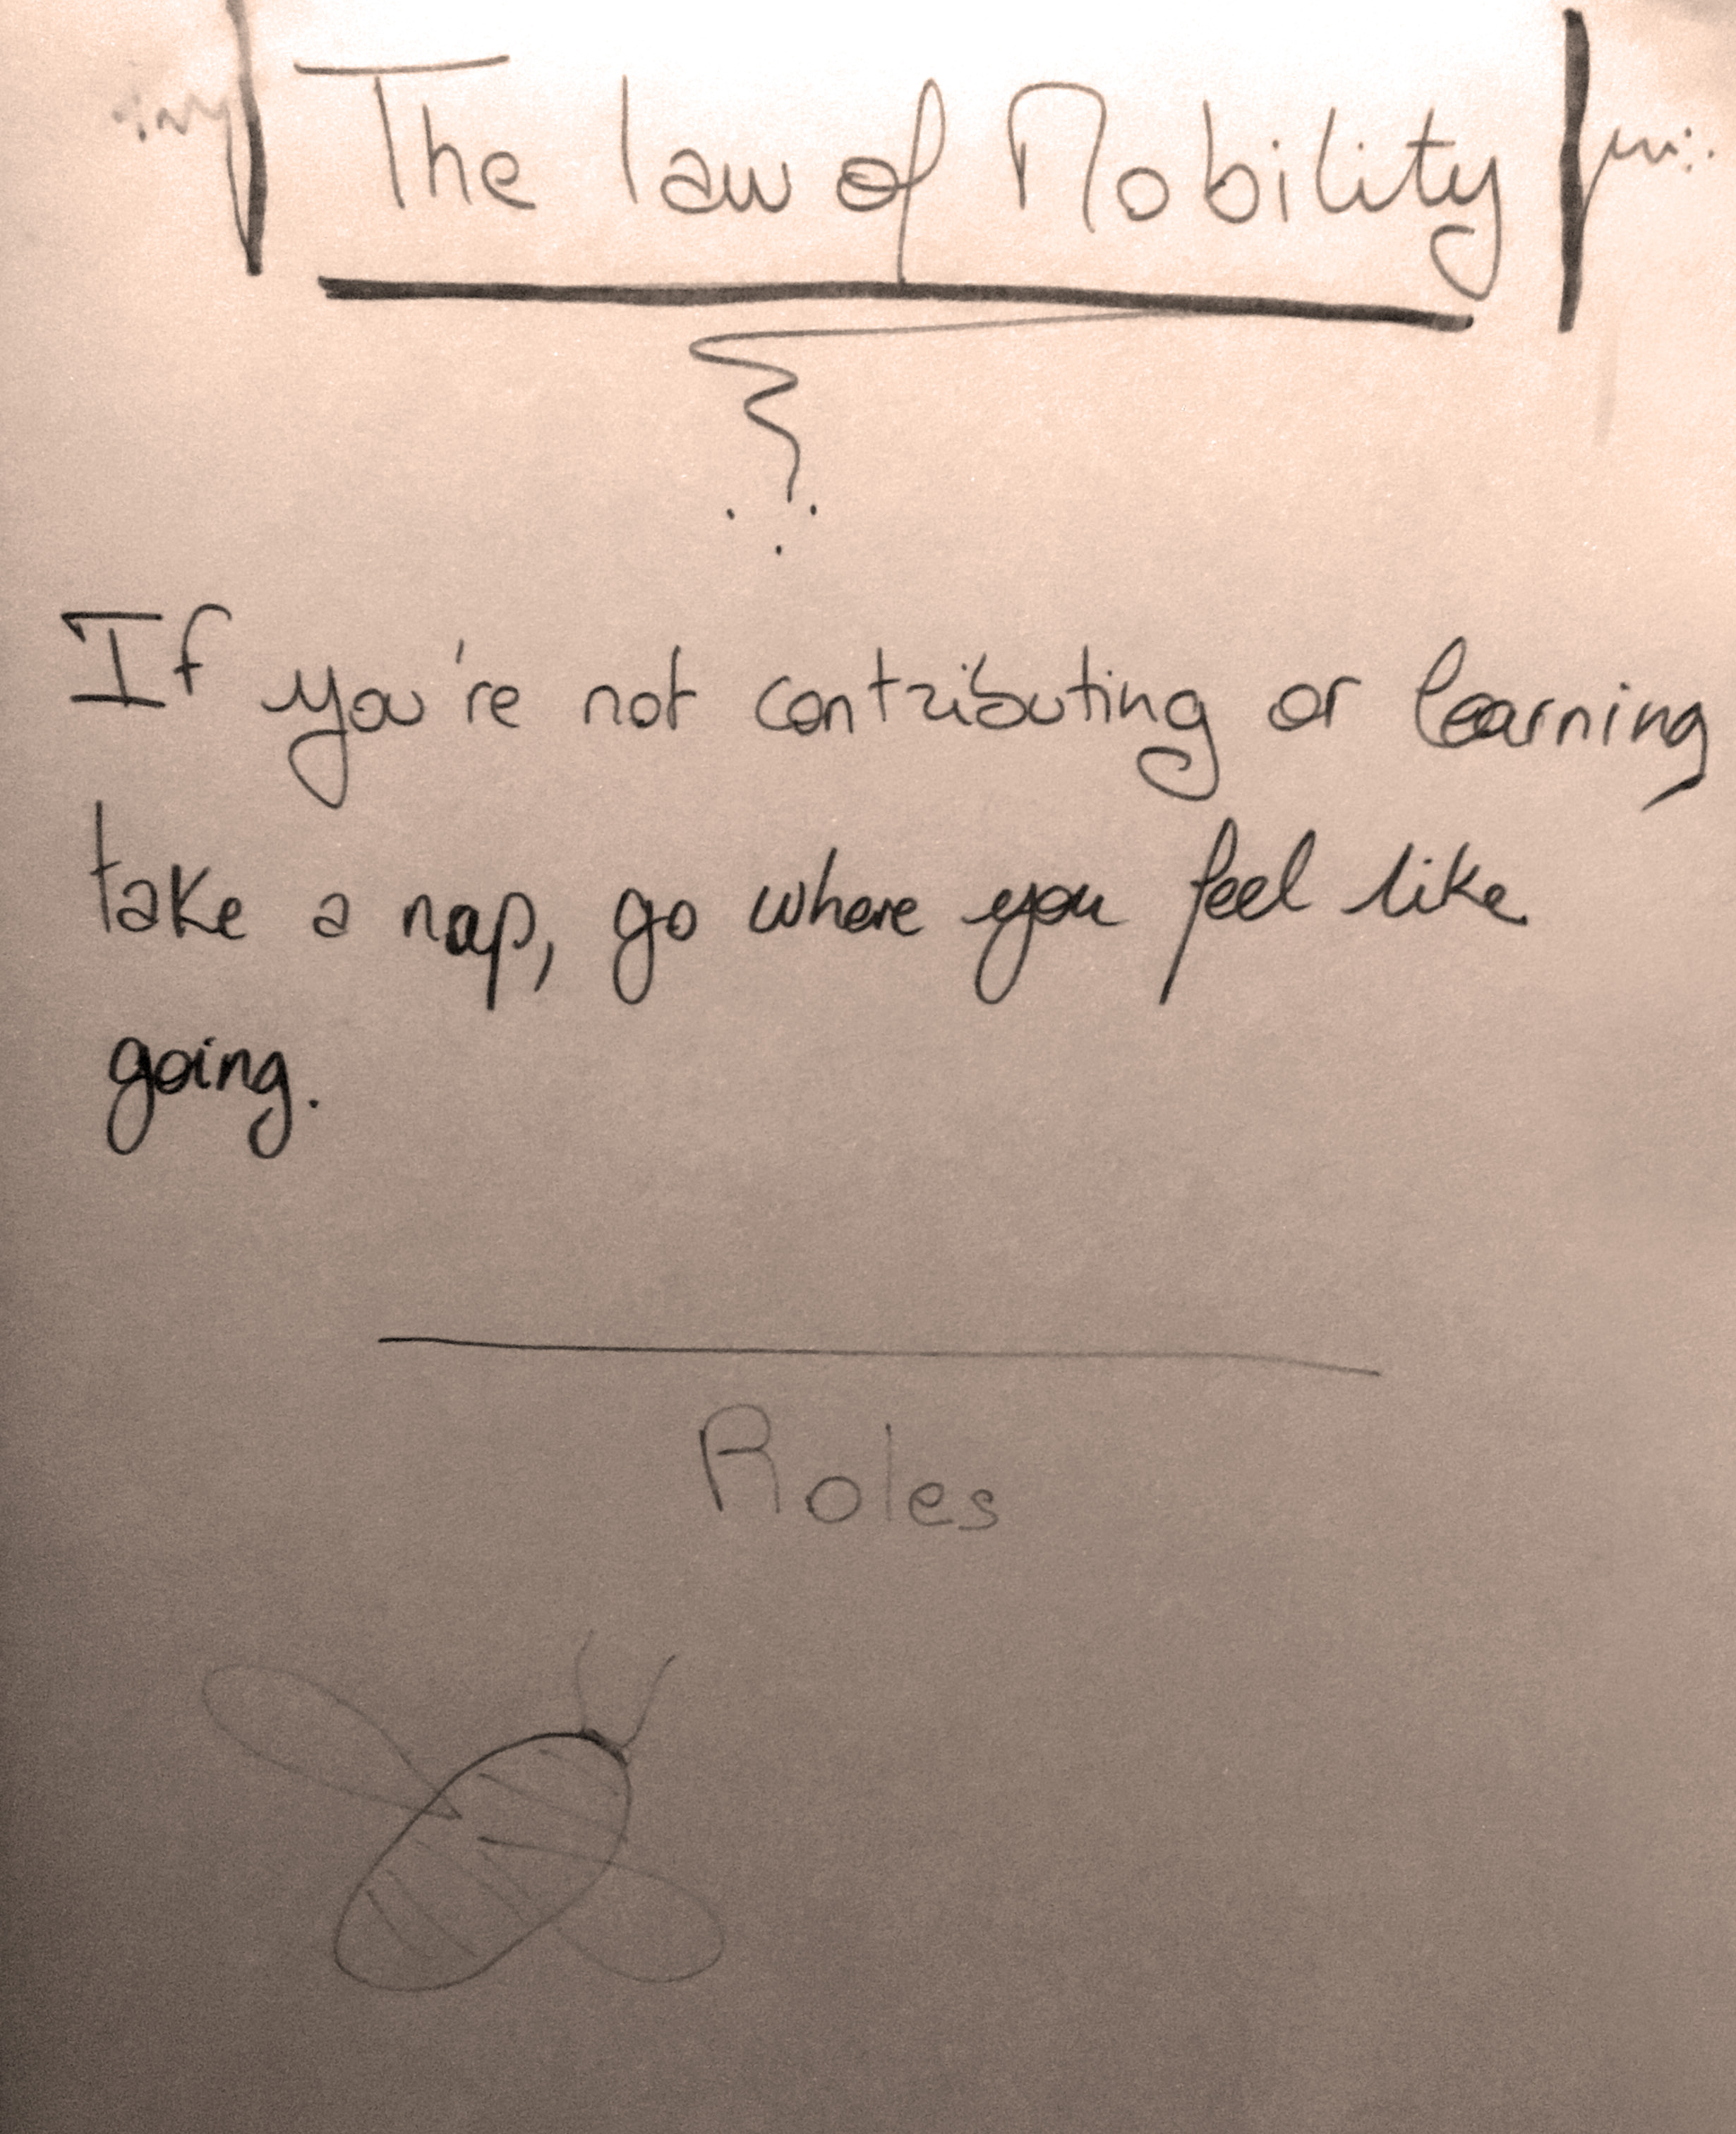 The law of Mobility
If you're not contributing or learning
take a nap, go where you feel like
going.
Roles